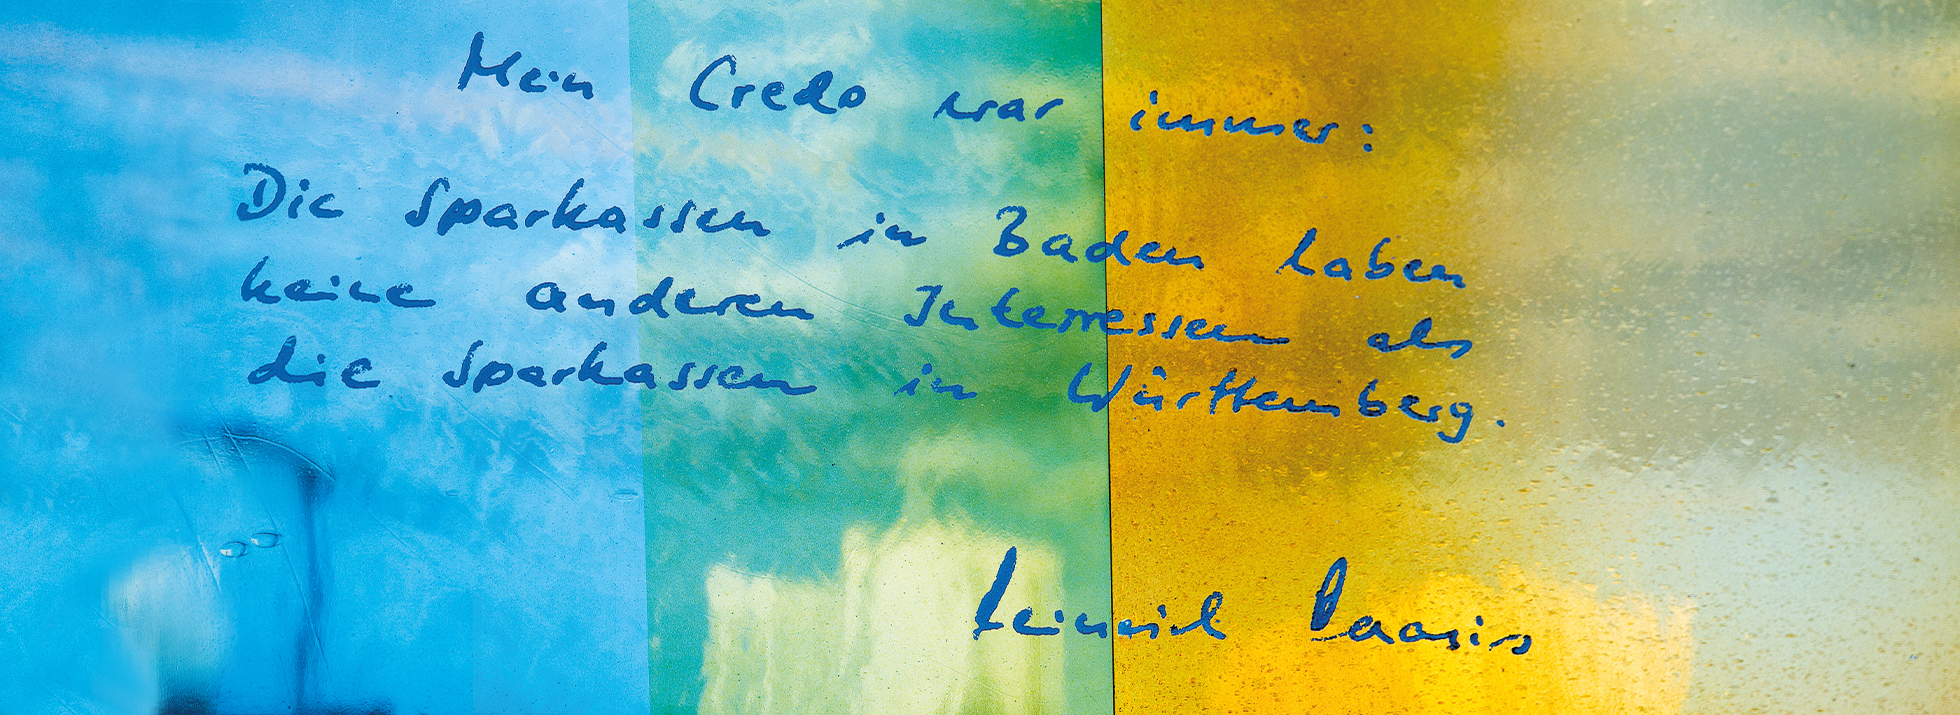 Mein Credo war immer:
Die Sparkassen in Baden haben
keine anderen Interressen als
die Sparkassen in Württemberg.
Heinrich Haasis